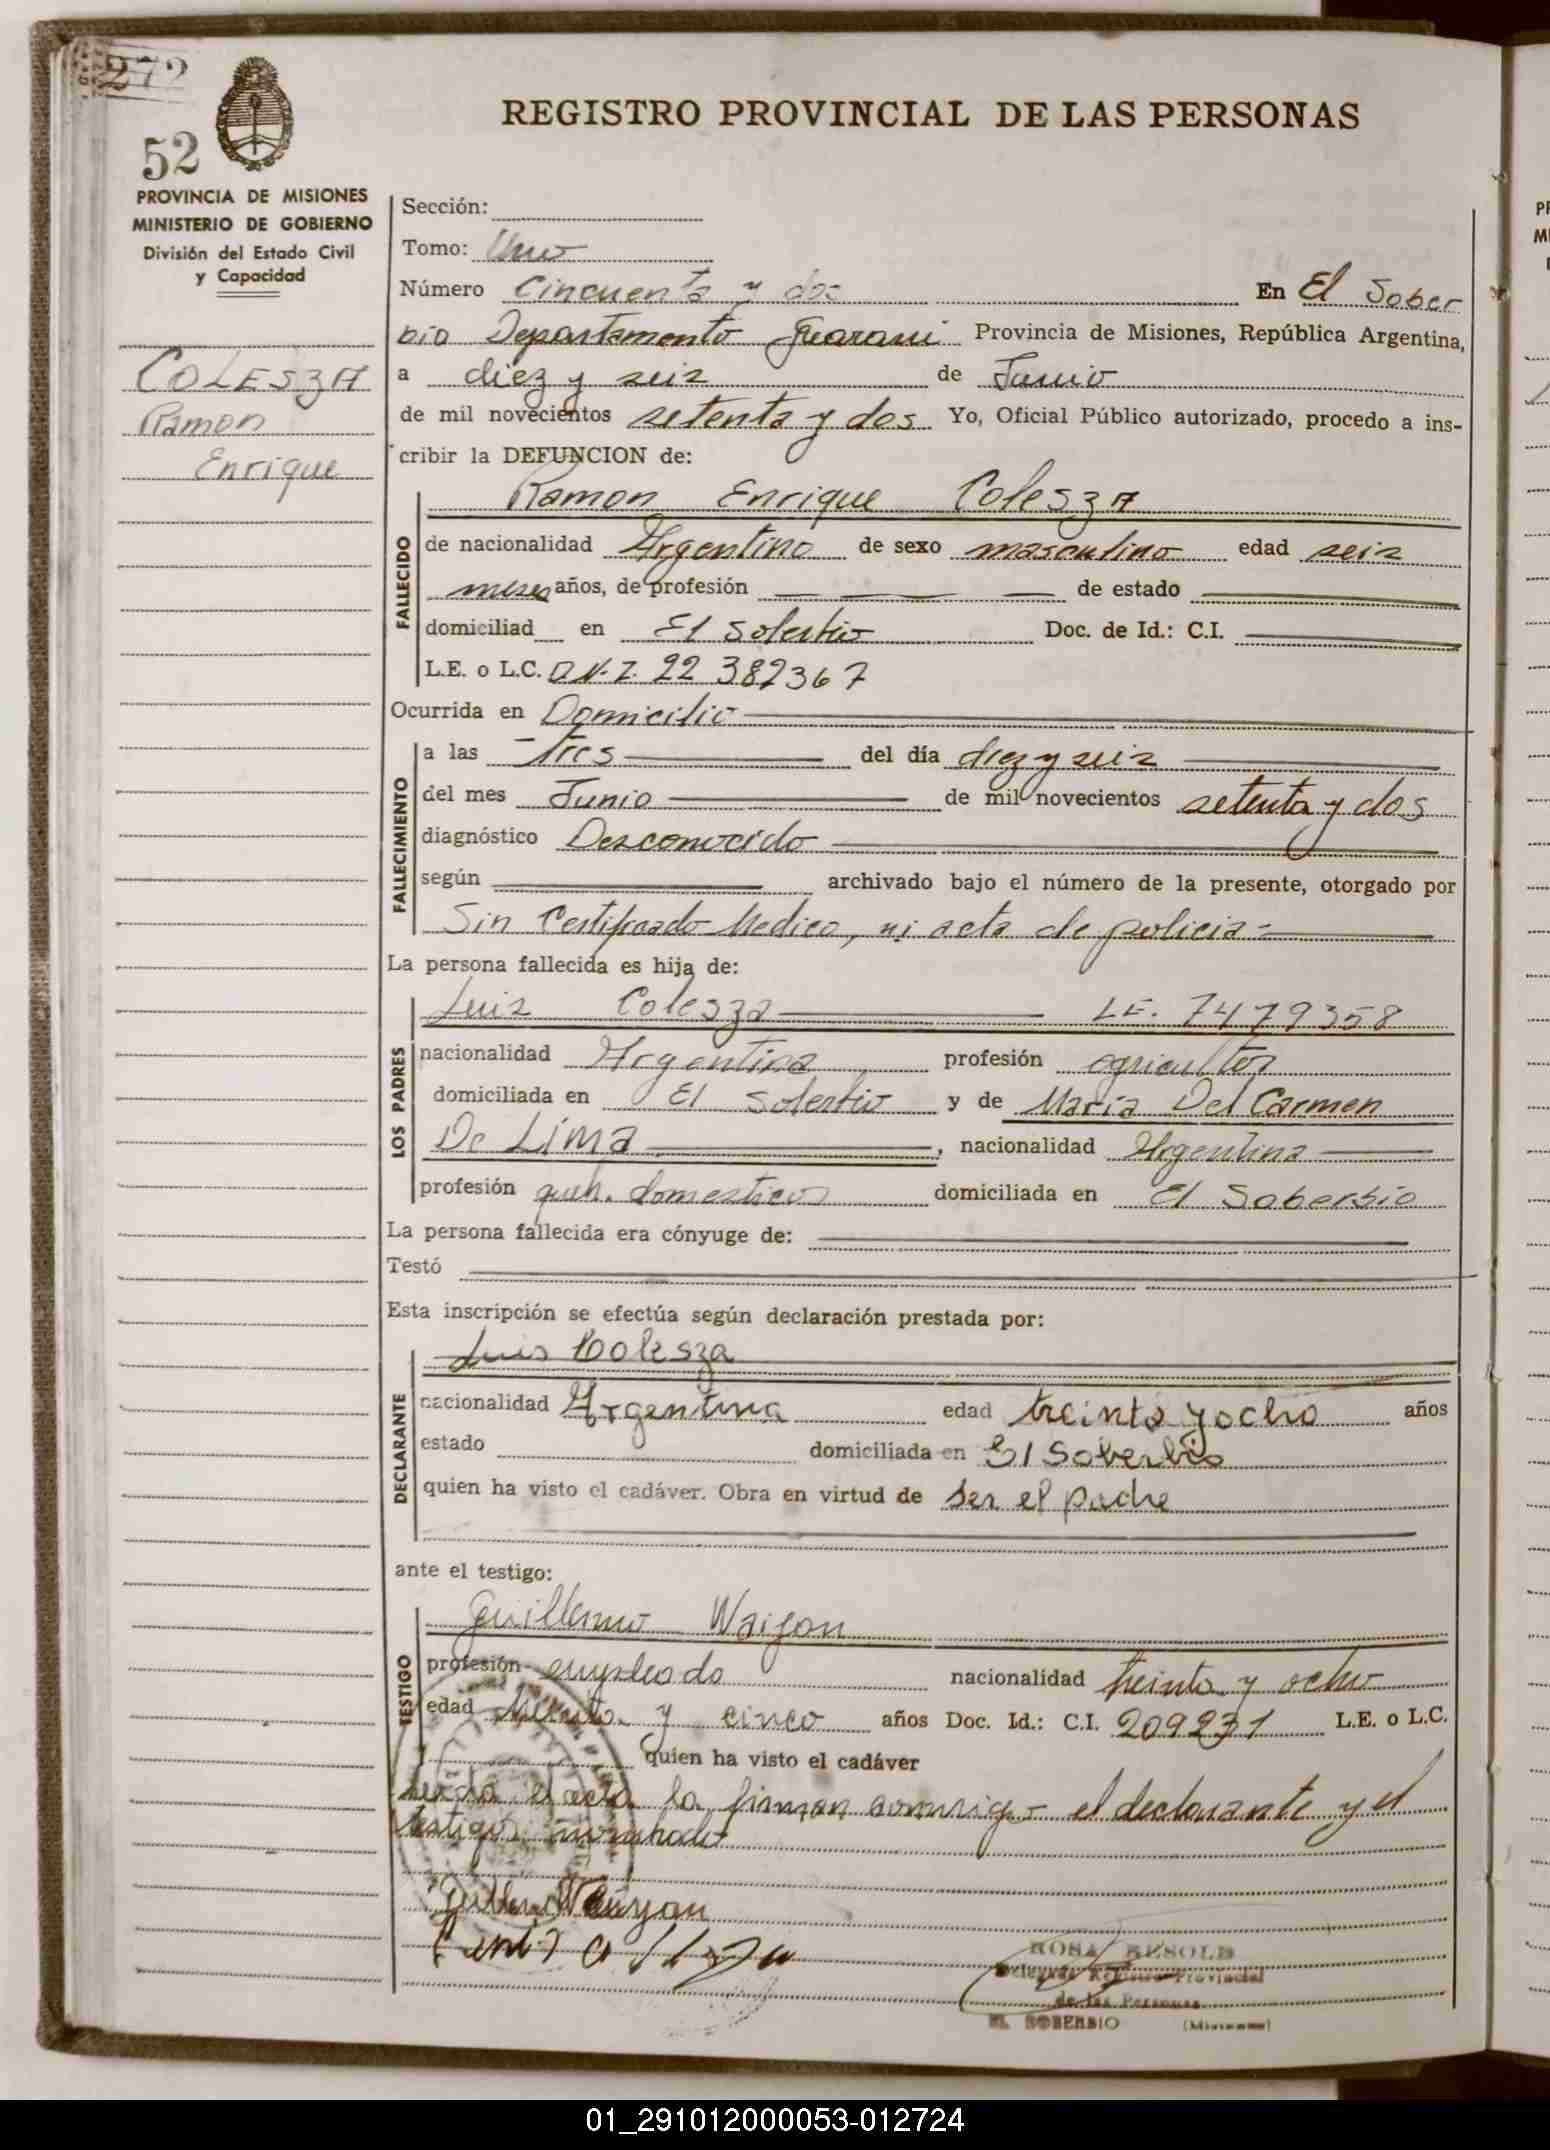 272
52
REGISTRO PROVINCIAL DE LAS PERSONAS
PROVINCIA DE MISIONES
MINISTERIO DE GOBIERNO
División del Estado Civil
y Capacidad
COLESZA
Ramon
Enrique
Sección:
Tomo: Uno
Número Cincuenta y dos En El Sober
bio Departamento Guarani Provincia de Misiones, República Argentina,
a diez y seis de Junio
de mil novecientos setenta y dos Yo, Oficial Público autorizado, procedo a ins-
cribir la DEFUNCION de:
Ramon Enrique Colesza
FALLECIDO
de nacionalidad Argentino de sexo masculino edad seis
meses años, de profesión de estado
domiciliad en El Soberbio Doc. de Id.: C.I.
L.E. o L.C. 22 382367
Ocurrida en Domicilio
FALLECIMIENTO
a las Tres del día diez y seis
del mes Junio de mil novecientos setenta y dos
diagnóstico Desconocido
según archivado bajo el número de la presente, otorgado por
Sin Certificado Medico, ni acta de policia
La persona fallecida es hija de:
LOS PADRES
Luis Colesza LE. 7479358
nacionalidad Argentina profesión agricultor
domiciliada en El Soberbio y de Maria Del Carmen
De Lima, nacionalidad Argentina
profesión queh. domesticos domiciliada en El Soberbio
La persona fallecida era cónyuge de:
Testó
Esta inscripción se efectúa según declaración prestada por:
DECLARANTE
Luis Colesza
nacionalidad Argentina edad treinta y ocho años
estado domiciliada en El Soberbio
quien ha visto el cadáver. Obra en virtud de ser el padre
ante el testigo:
TESTIGO
Guillermo
profesión empleado nacionalidad treinta y ocho
edad y cinco años Doc. Id.: C.I. 209231 L.E. o L.C.
quien ha visto el cadáver
el acta la firman conmigo el declarante y el
testigo nombrado
ROSA
Delegado Registro Provincial
de las Personas
EL SOBERBIO (Misiones)
01_291012000053-012724